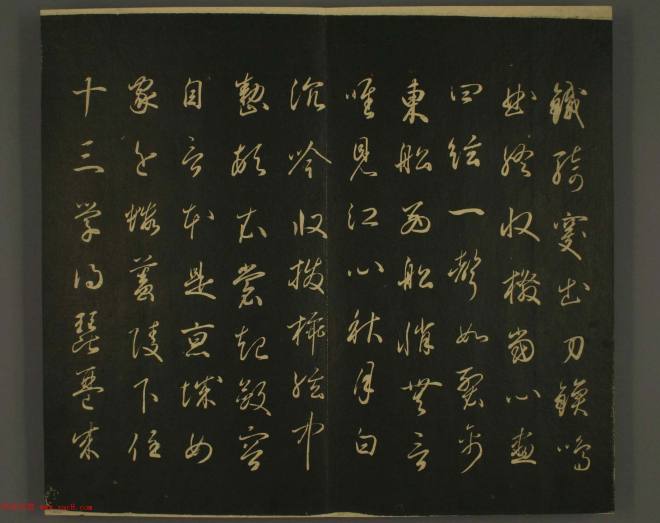 鐵騎突出刀鎗鳴
曲終收撥當心畫
四絃一聲如裂帛
東船西船悄無言
唯見江心秋月白
沉吟收撥插絃中
整頓衣裳起斂容
自言本是京城女
家在蝦蟇陵下住
十三学得琵琶成